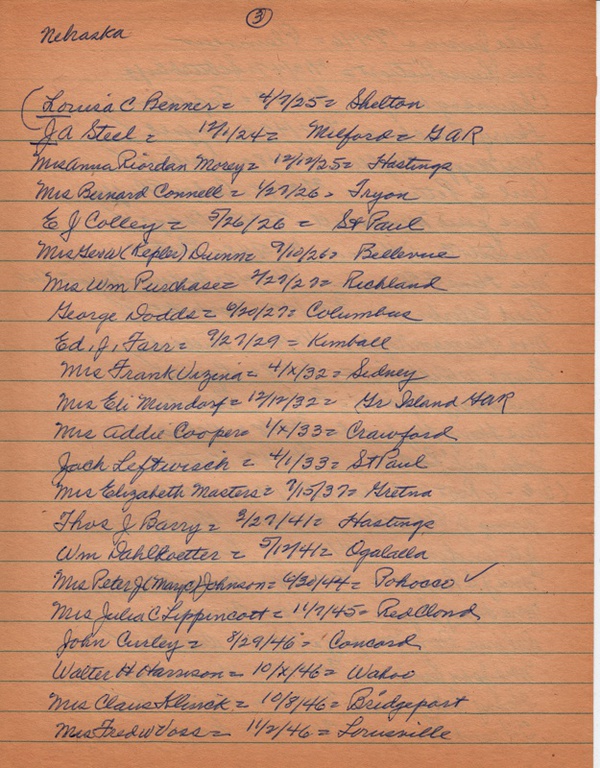 3
Nebraska
(Louisa C Benner = 4/7/25 = Shelton
J A Steel = 12/1/24 = Milford = GAR
Mrs Anna Riordan Morey = 12/12/25 = Hastings
Mrs Bernard Connell = 1/27/26 = Tryon
E J Colley = 5/26/26 = St Paul
Mrs Geo W (Kepler) Dunn = 9/10/26 = Bellevue
Mrs Wm Purchase = 7/29/27 = Richland
George Dodds = 6/20/27 = Columbus
Ed. J. Farr = 9/27/29 = Kimball
Mrs Frank Vizina = 4/x/32 = Sidney
Mrs Eli Mundorf = 12/12/32 = Gr Island GAR
Mrs Addie Cooper = 1/x/33 = Crawford
Jack Leftwisch = 4/1/33 = St Paul
Mrs Elizabeth Masters = 7/15/37 = Gretna
Thos J Barry = 3/27/41 = Hastings
Wm Dahlkoetter = 5/12/41 = Ogalalla
Mrs Peter J (Mary C) Johnson = 6/30/44 = Pohocco ✓
Mrs Julia C Lippincott = 11/7/45 = Red Cloud
John Curley = 8/29/46 = Concord
Walter H Harrison = 10/x/46 = Wahoo
Mrs Claus Klinck = 10/8/46 = Bridgeport
Mrs Fred W Voss = 11/2/46 = Louisville